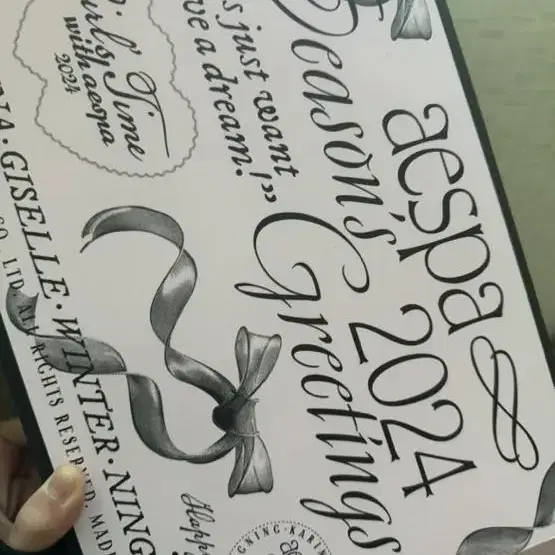 aespa 2024
Season's Greetings
s just want
ve a dream!”
Girls' Time
with aespa
2024
GISELLE · WINTER · NING
CO., LTD. ALL RIGHTS RESERVED. MADE
Happy
NING · KARIN